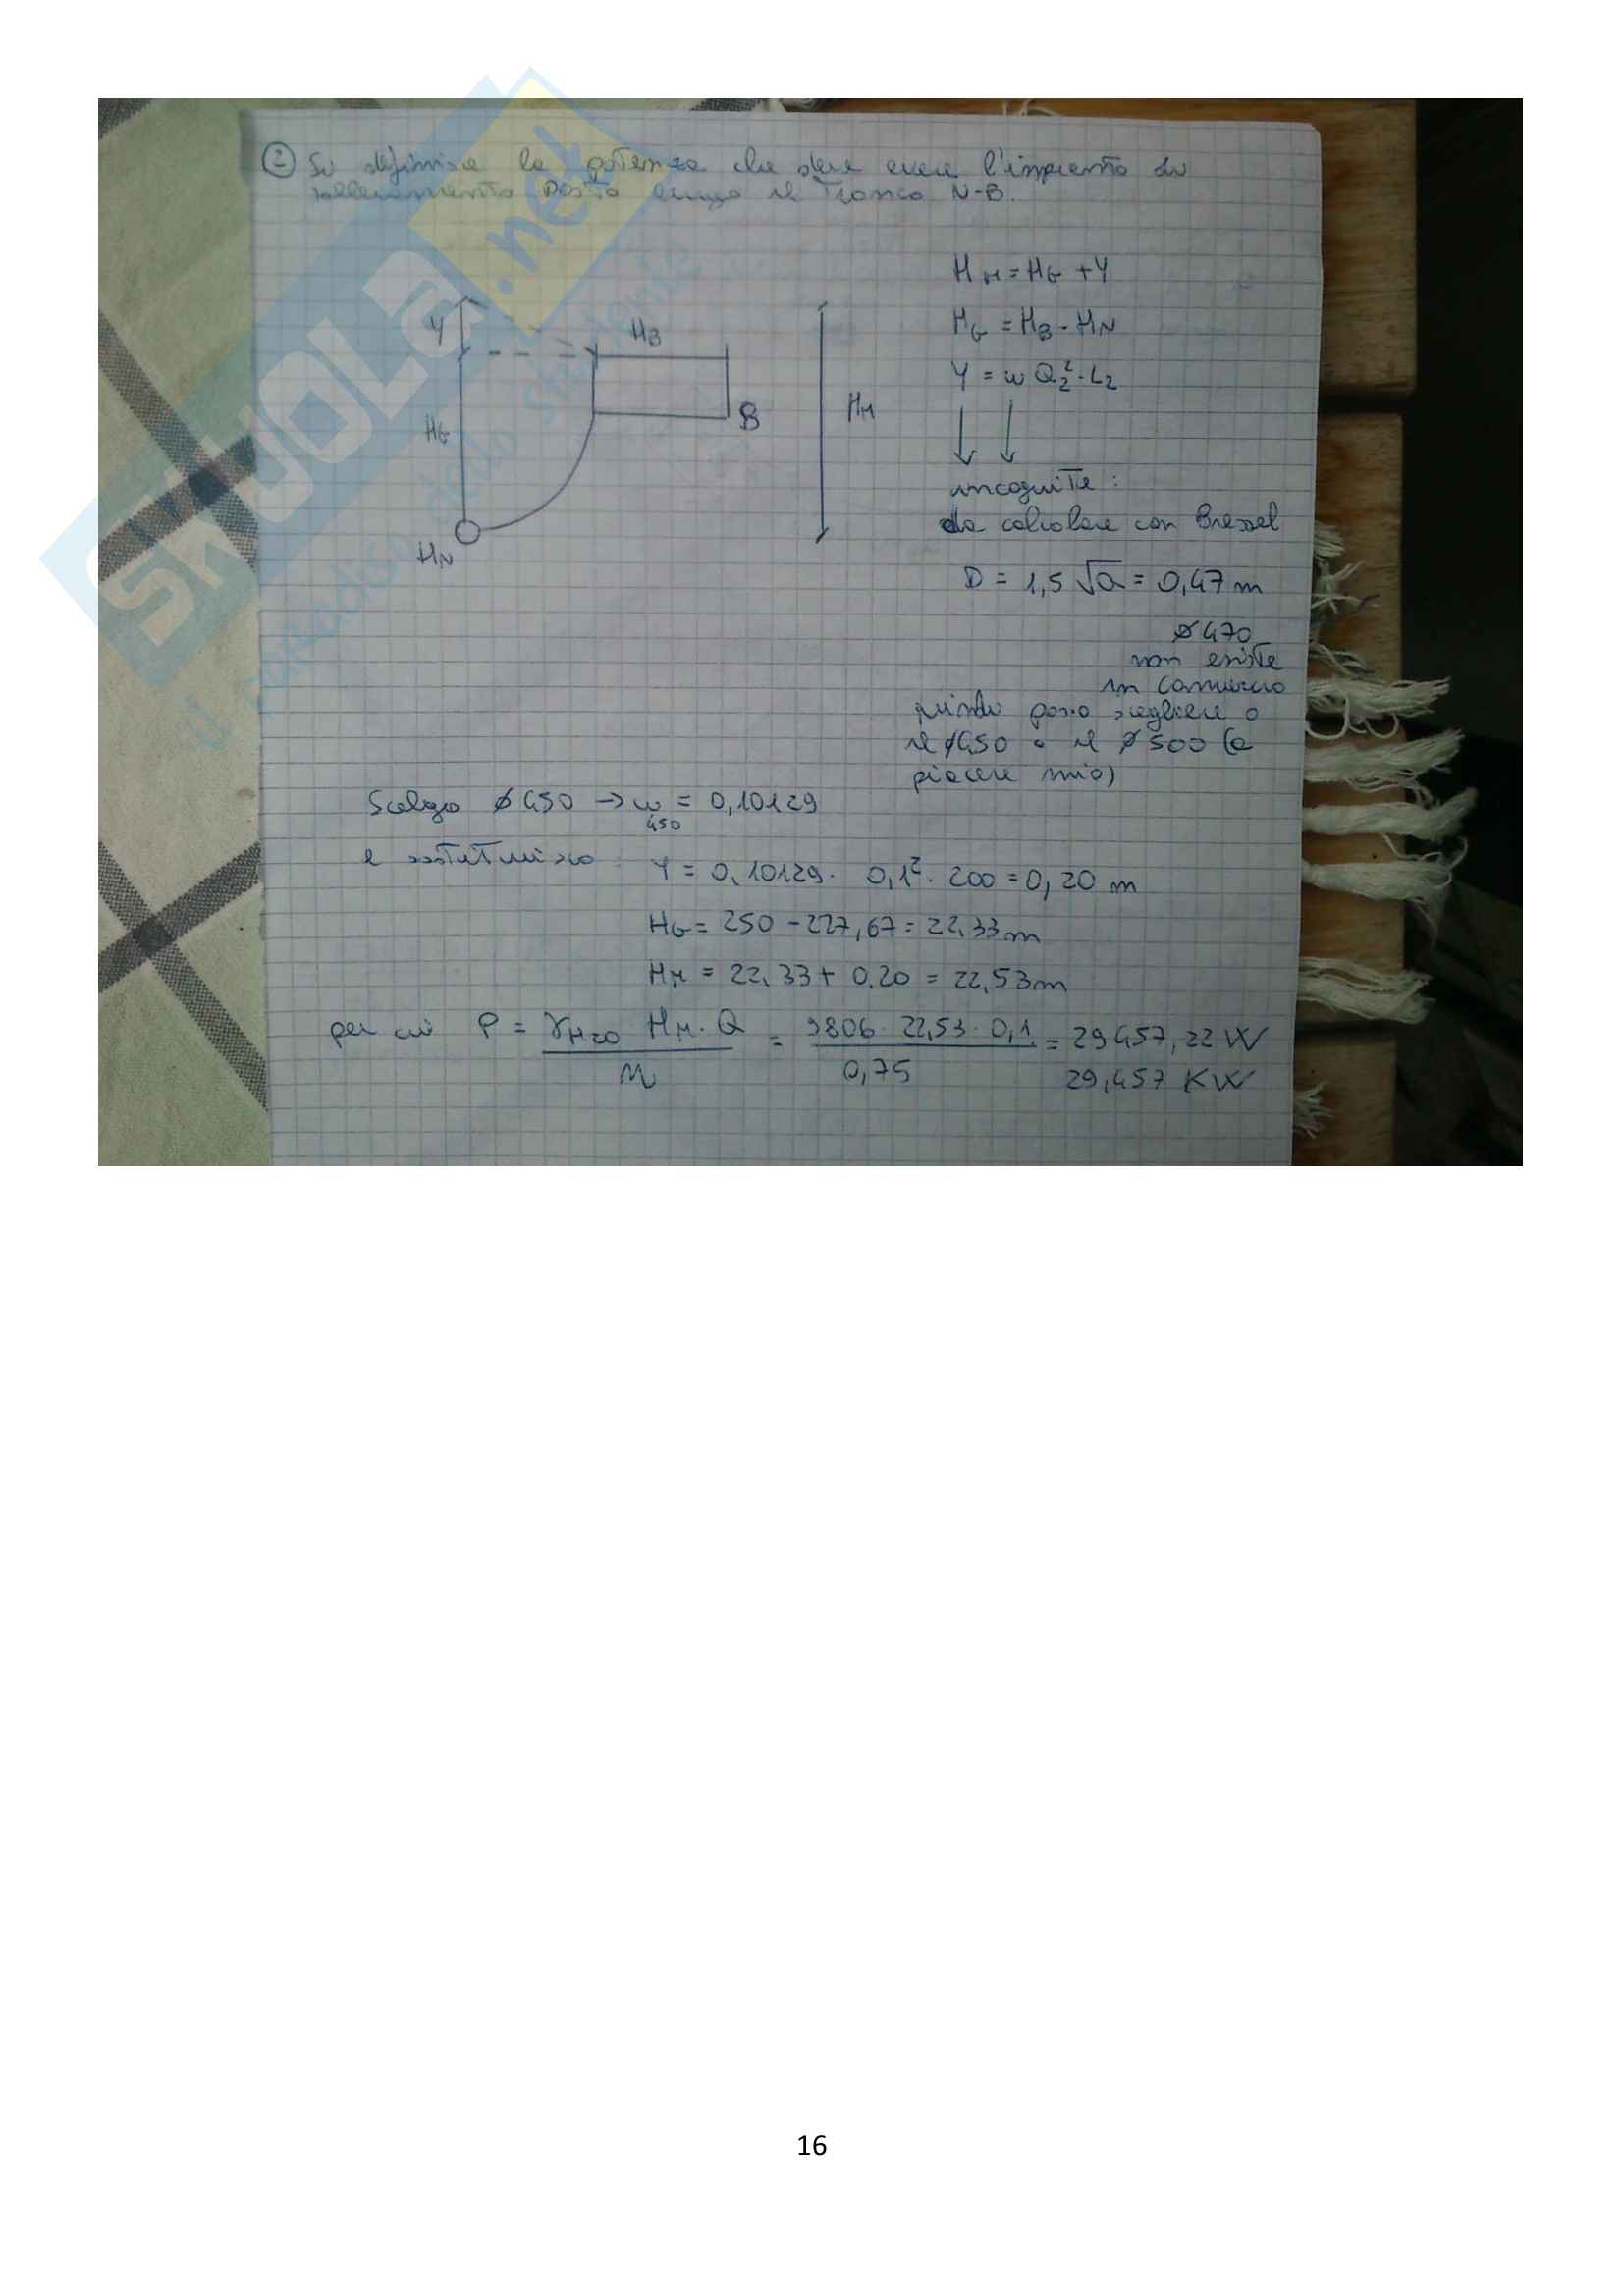 ② Si definisca la potenza che deve avere l'impianto di
sollevamento posto lungo il tronco N-B.
Y
HB
HG
B
HN
HM
HM = HG + Y
HG = HB - HN
Y = w Q₂² · L₂
incognite :
da calcolare con Bressel
D = 1,5 √Q = 0,47 m
ø 470
non esiste
in commercio
quindi posso scegliere o
il ø450 o il ø500 (a
piacere mio)
Scelgo ø 450 → w = 0,10129
450
e sostituisco : Y = 0,10129 · 0,1² · 200 = 0,20 m
HG = 250 - 227,67 = 22,33 m
HM = 22,33 + 0,20 = 22,53 m
per cui P = γH2O HM · Q / η = 9806 · 22,53 · 0,1 / 0,75 = 29457,22 W
29,457 KW
SKUOLA.net
il paradiso dello studente
16